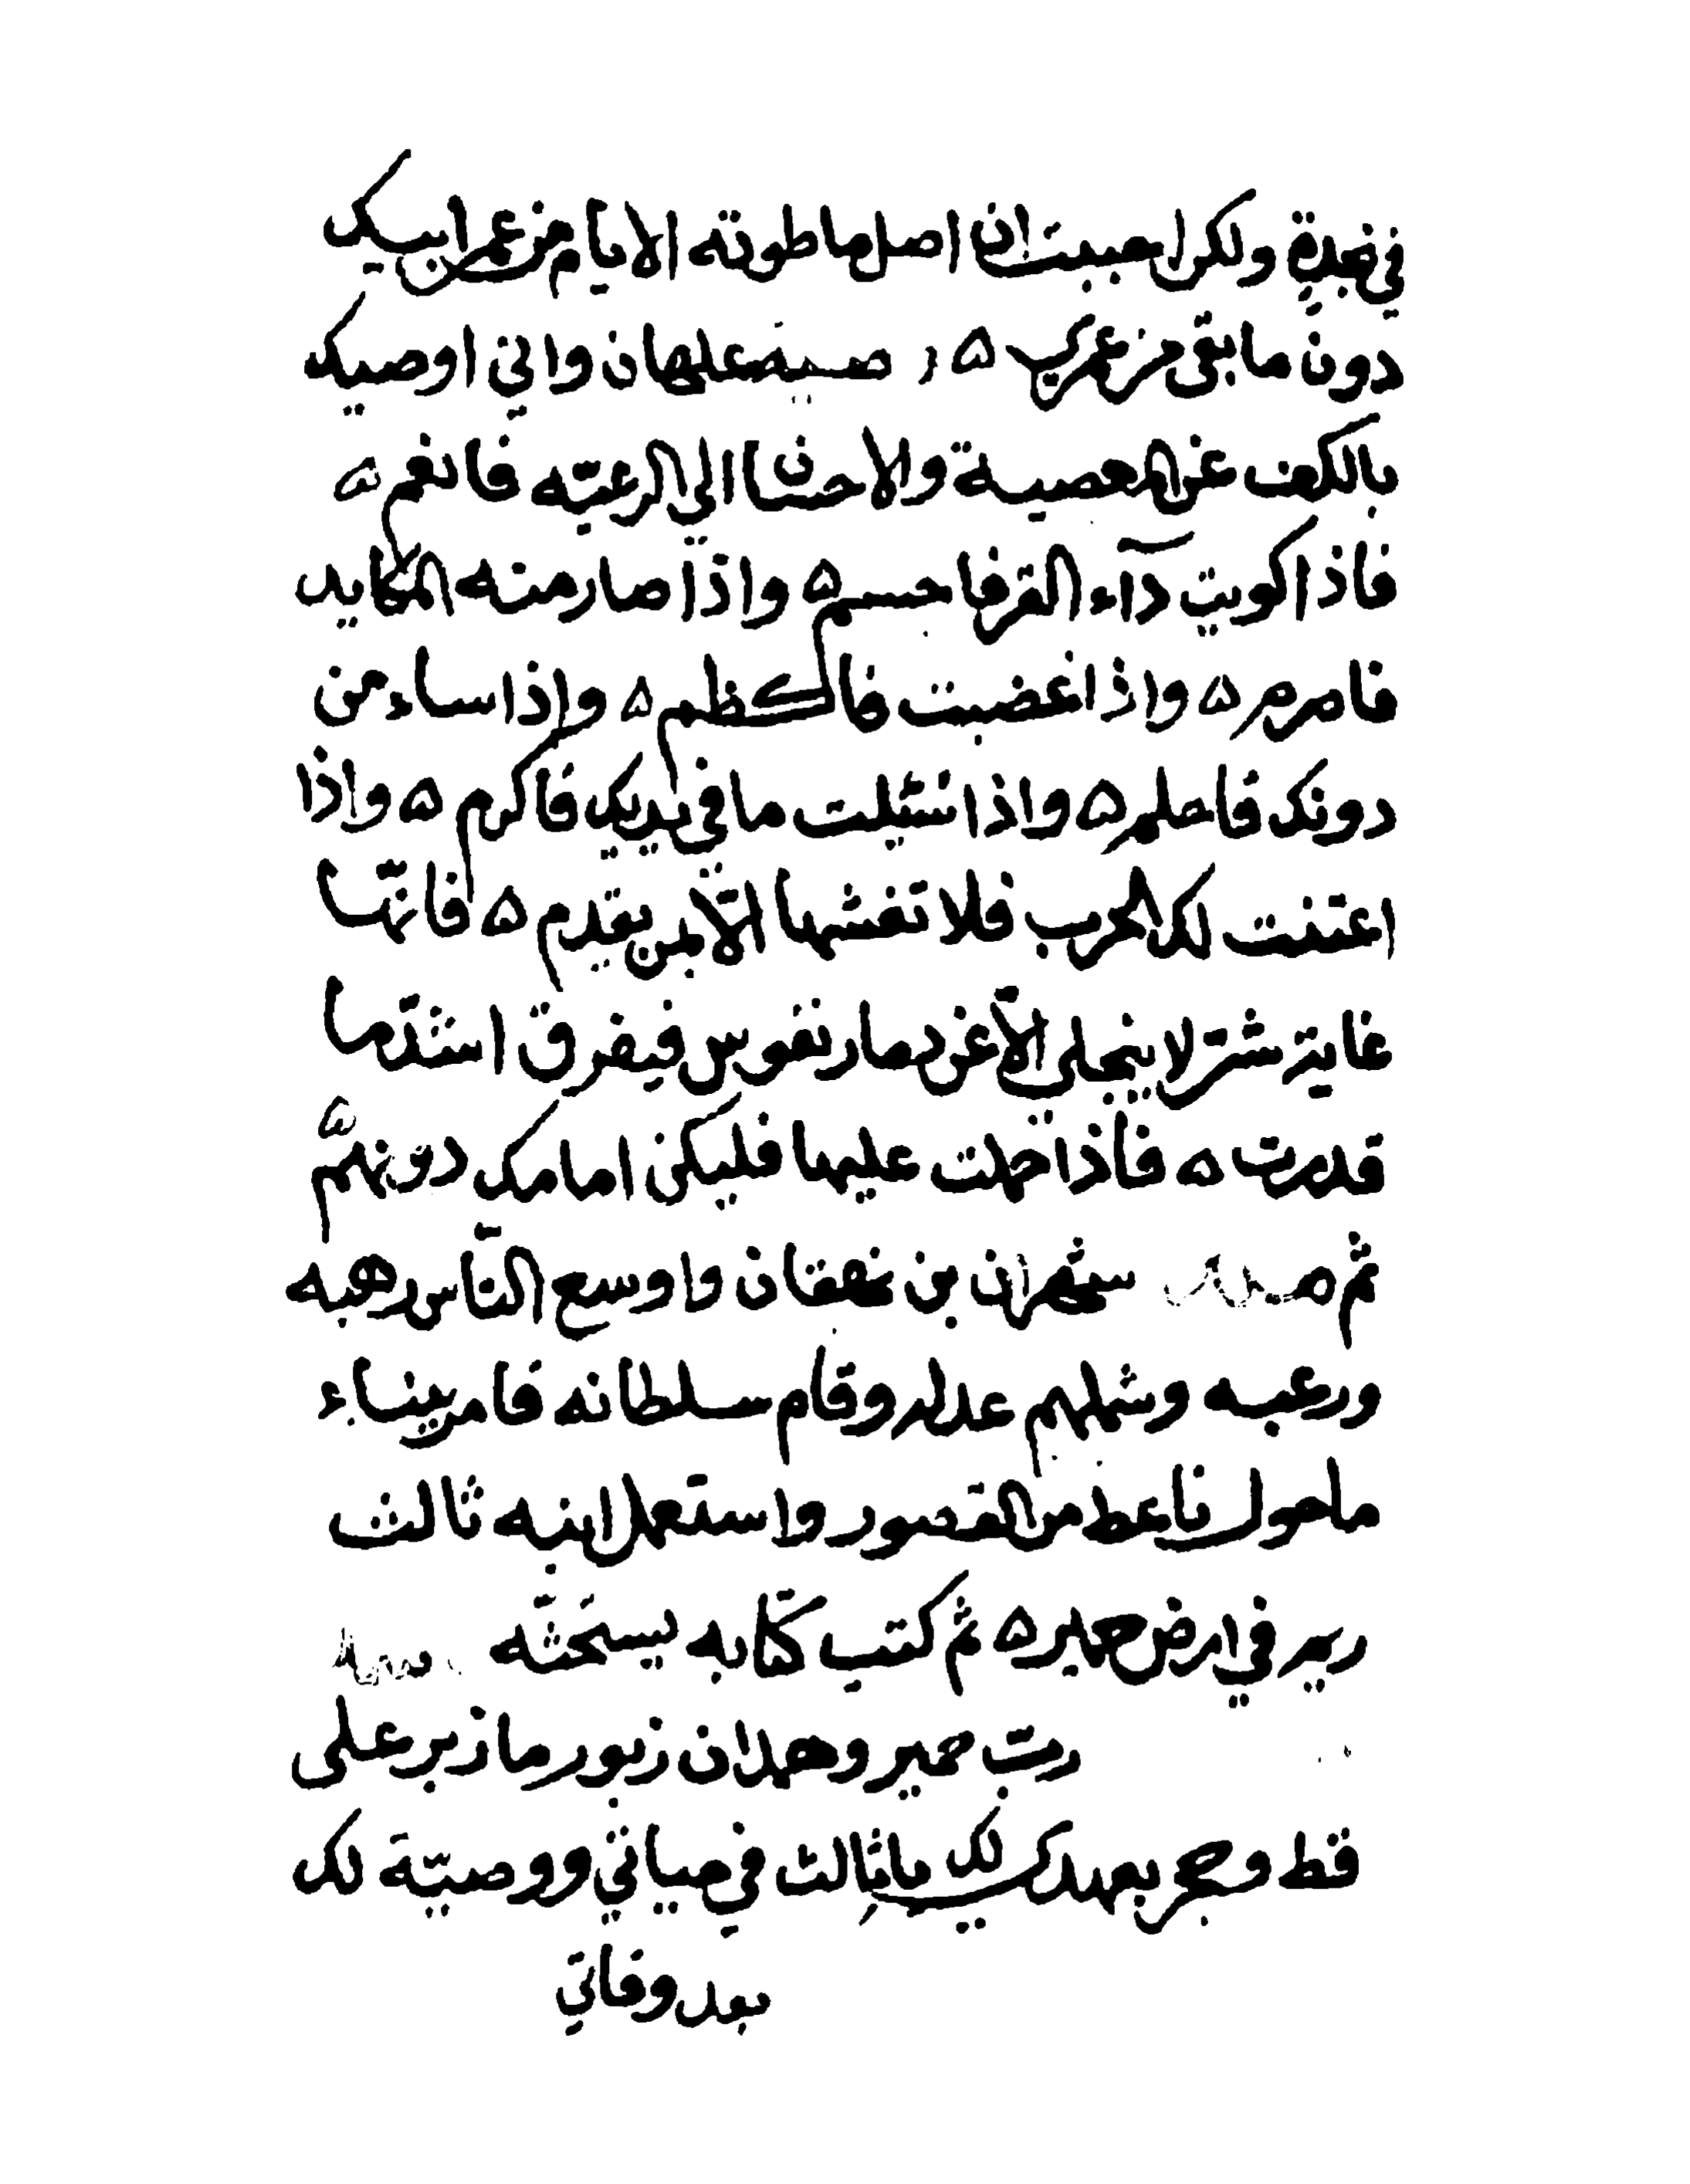 في نجدة ولكن احببت ان اصل ما طوته الايام من عمر ابيك
دون ما بقي من عمرك ه وصية علهان واني اوصيك
بالكف عن المعصية والاحسان الى الرعيّه فانعم ه
فاذا كويت دآء القرفاحسم ه واذا صارمته المكايد
فامرم ه واذا غضبت فاكظم ه واذا ساء من
دونك فاحلم ه واذا سئلت ما في يديك فاكرم ه واذا
اعتنت لك الحرب فلا تغشها الّا بمن يقدم ه فانّها
غاية شرّ لا ينجلي الّا عن دمار نفوس فيفرق اشدّ ما
قدرت ه فاذا حملت عليها فليكن امامك دونهمّ ه
ثم شهران بن نهفان واوسع النّاس رهبه
ورعبه وشملهم عدله وقام سلطانه فامر ببناء
ما حول ناعط من القصور واستعمل ابنه ثالث
ريم في ارض حمير ه ثم كتب كتابه يستحثّه
ربّ حمير وهمدان زبور ما زبر على
قط وحجر بعهدي لك يا ثالث في حياتي ووصيّة لك
بعد وفاتي